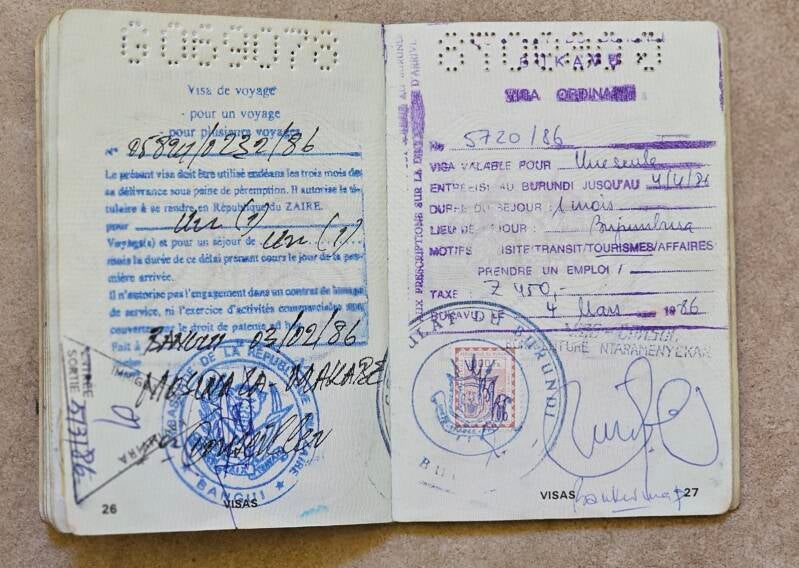 G069078
Visa de voyage
- pour un voyage
pour plusieurs voyages
N° /0232/86
Le présent visa doit être utilisé endéans les trois mois de
sa délivrance sous peine de péremption. Il autorise le ti-
tulaire à se rendre en République du ZAIRE.
pour Un (1)
Voyage(s) et pour un séjour de un (1)
mois la durée de ce délai prenant cours le jour de la pre-
mière arrivée.
Il n'autorise pas l'engagement dans un contrat de louage
de service, ni l'exercice d'activités commerciales
le droit de patente
Fait à BANGUI 03/02/86
AMBASSADE DE LA REPUBLIQUE
BANGUI
ENTREE
SORTIE
Conseiller
26
VISAS
BUKAVU
VISA ORDINAIRE
No 5720/86
VISA VALABLE POUR Une seule
ENTREE(S) AU BURUNDI JUSQU'AU 4/4/86
DUREE DU SEJOUR : 1 mois
LIEU DE SEJOUR : Bujumbura
MOTIFS VISITE/TRANSIT/TOURISMES/AFFAIRES
PRENDRE UN EMPLOI /
TAXE Z 450,-
BUKAVU LE 4 Mars 1986
VICE-CONSUL
NTARAMENYEKAN
DU BURUNDI
VISAS
27